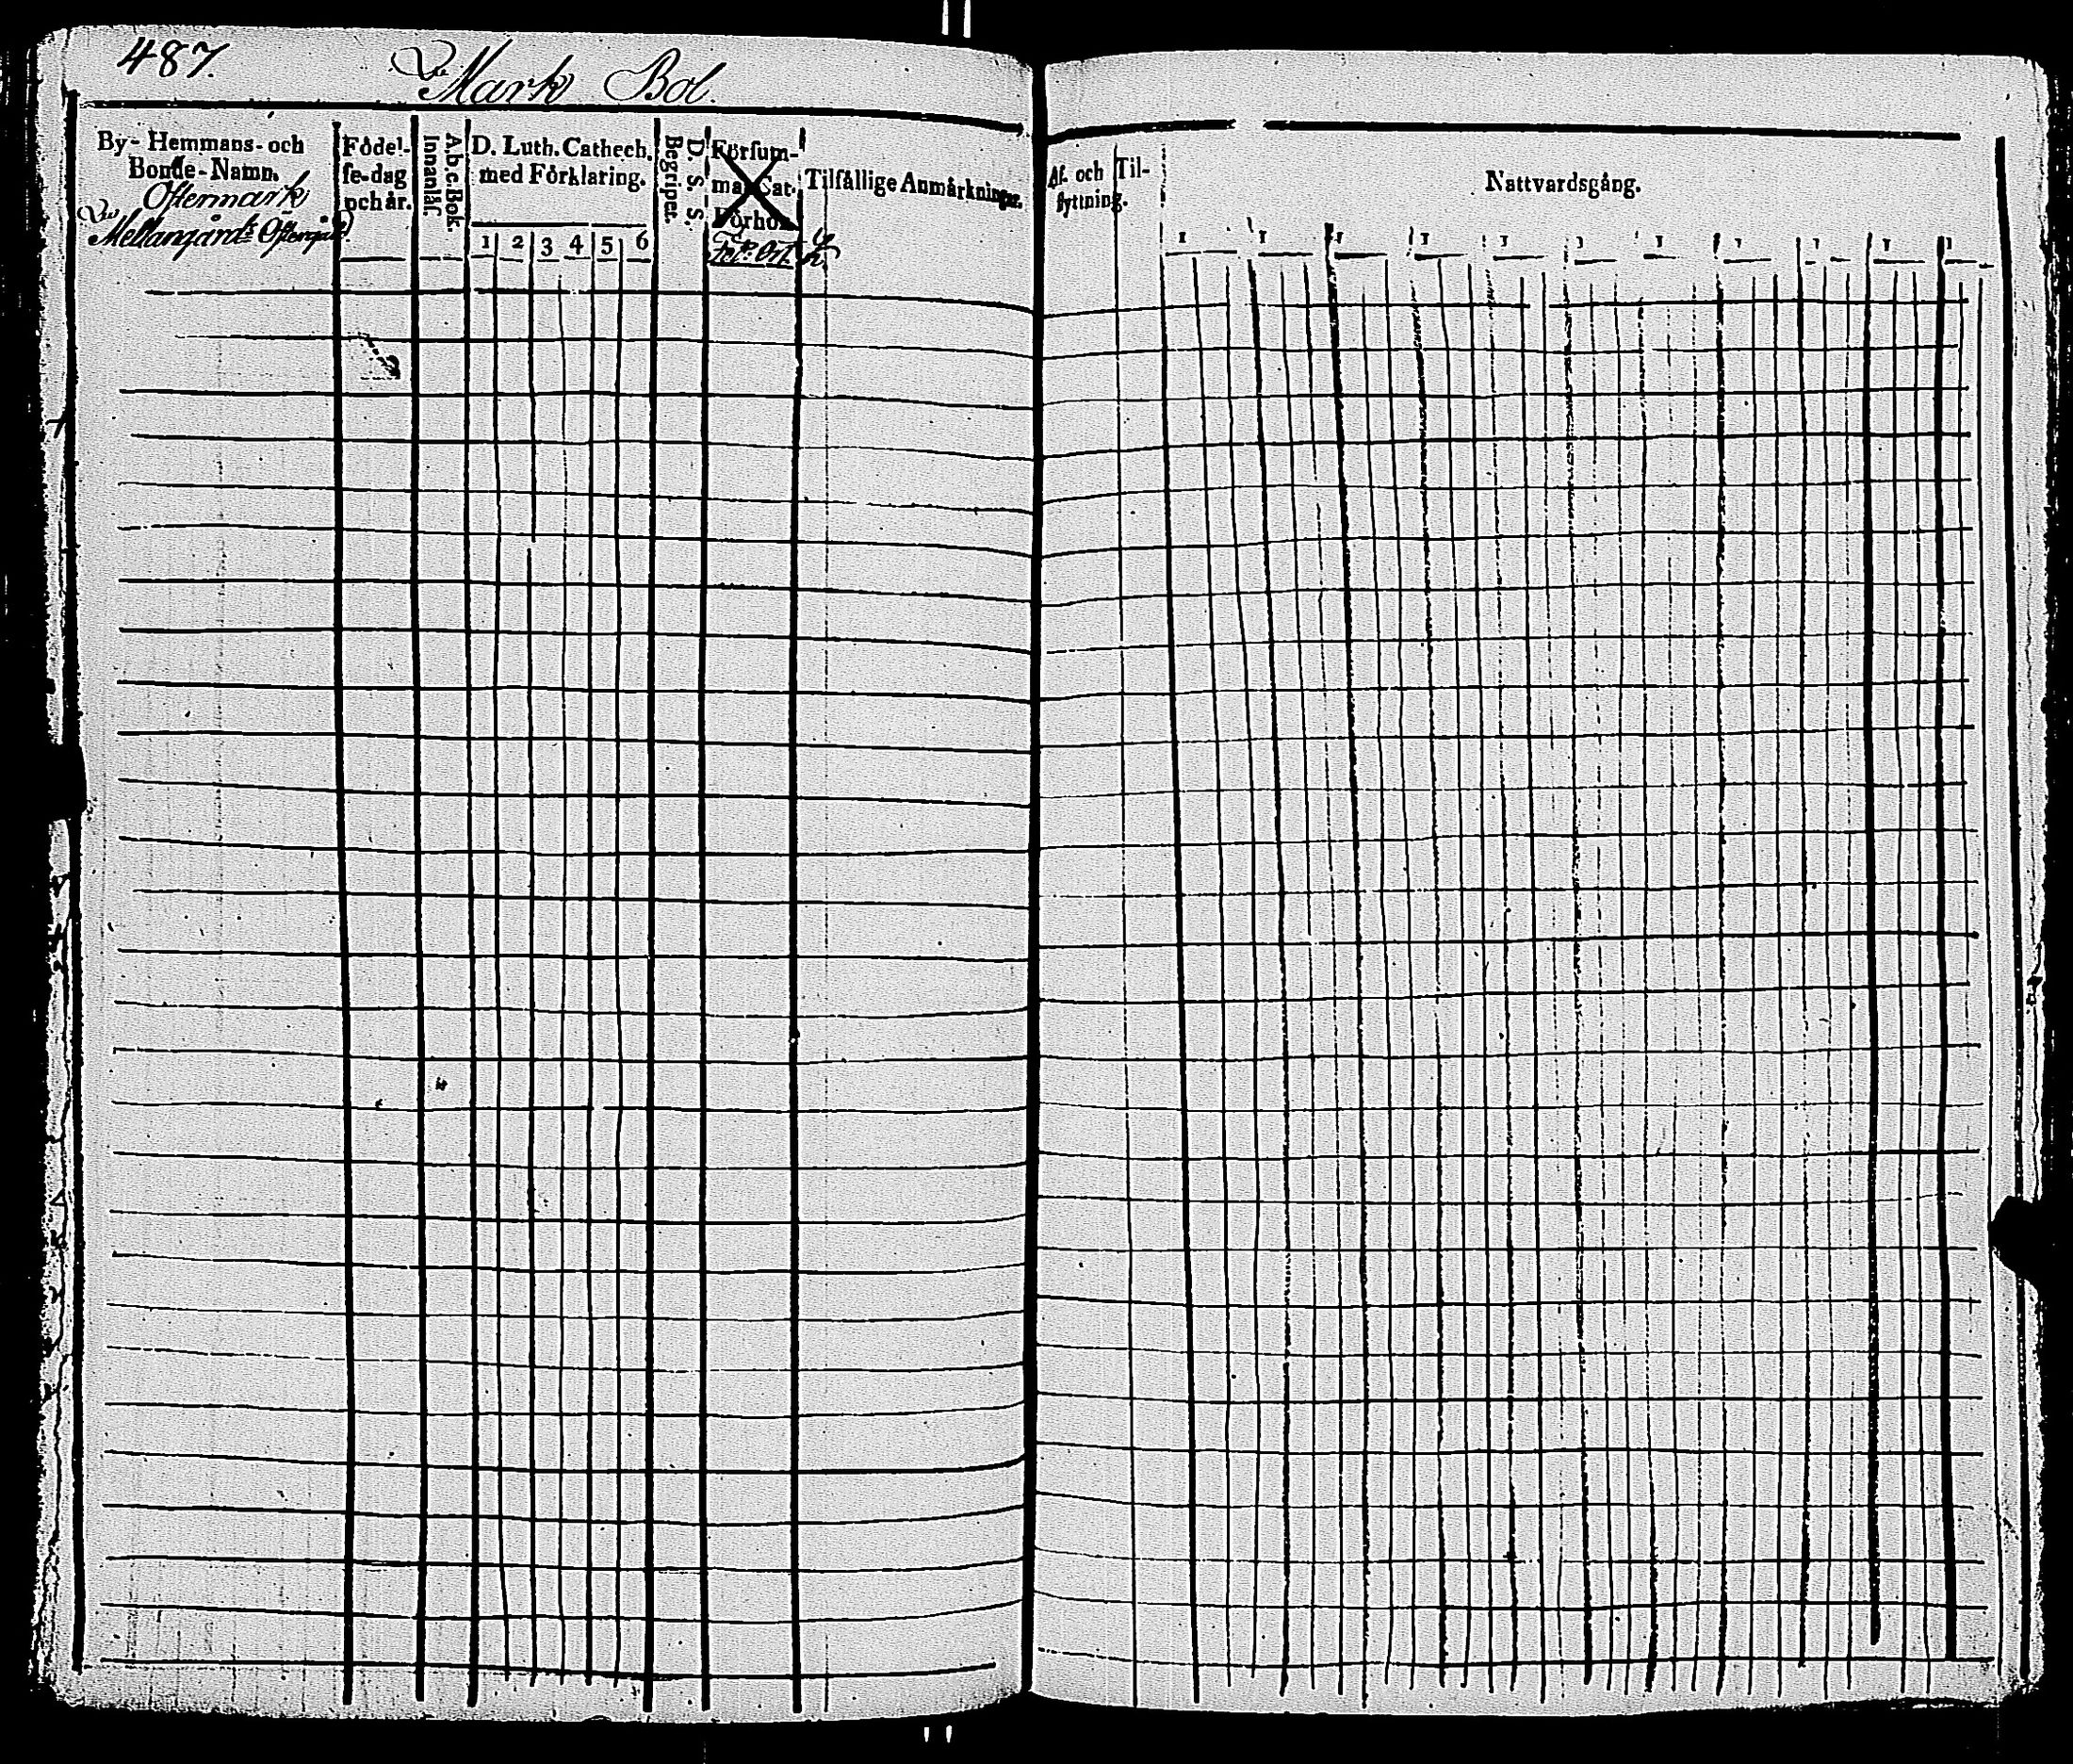 487.
Mark Bol.
By- Hemmans- och
Bonde-Namn.
Östermark
Mellangårds Östergård
Födel-
se-dag
och år.
A.b.c Bok
Innanläs.
D. Luth. Cathech.
med Förklaring.
1 2 3 4 5 6
D. S. S.
Begripet.
Försum-
ma Cat.
Förhör.
Tilfällige Anmärkningar.
Af- och Til-
flyttning.
Nattvardsgång.
1 1 1 1 1 1 1 1 1 1 1